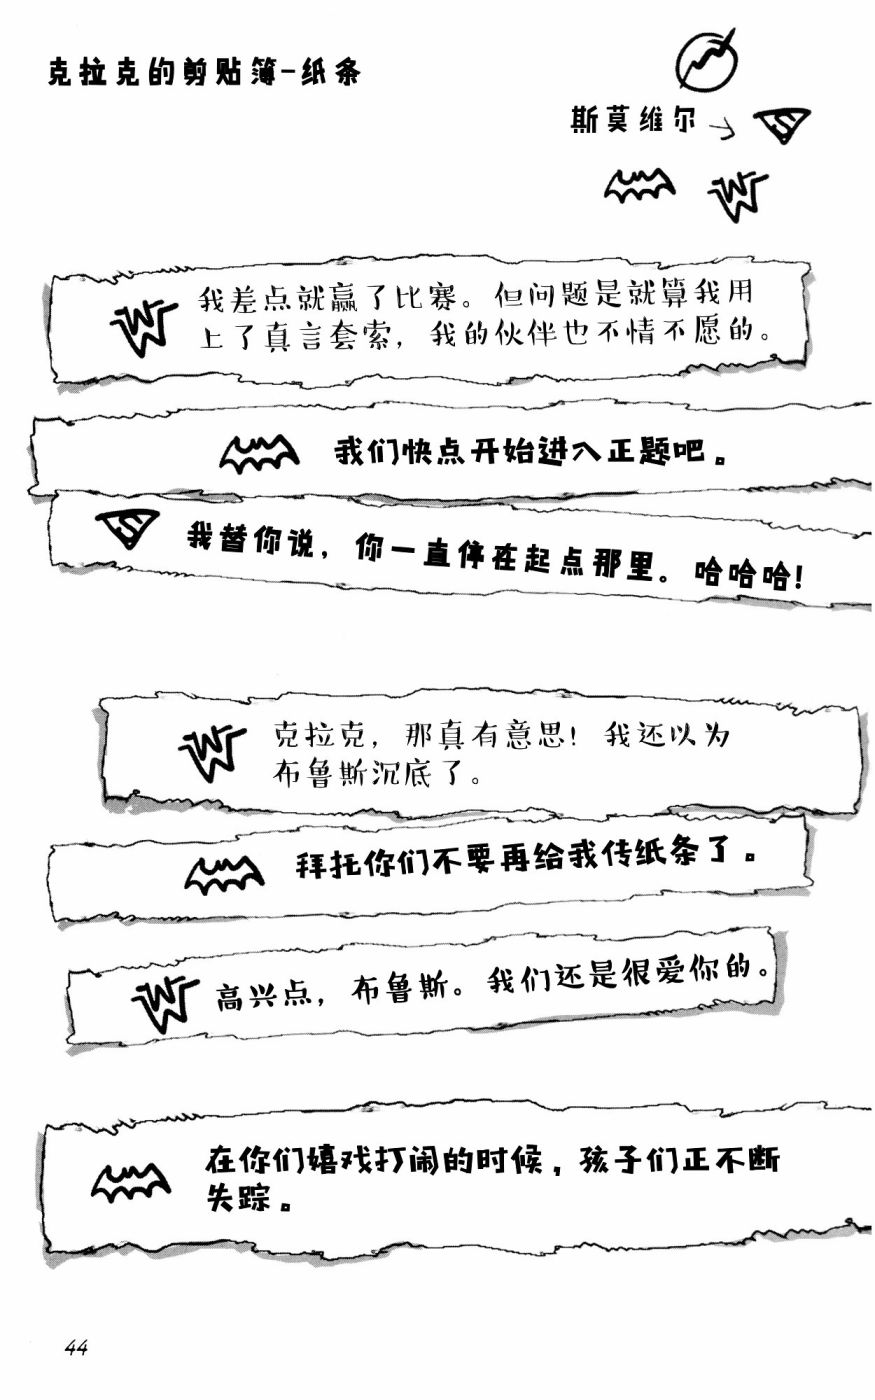 克拉克的剪贴簿-纸条
斯莫维尔
我差点就赢了比赛。但问题是就算我用
上了真言套索，我的伙伴也不情不愿的。
我们快点开始进入正题吧。
我替你说，你一直停在起点那里。哈哈哈！
克拉克，那真有意思！我还以为
布鲁斯沉底了。
拜托你们不要再给我传纸条了。
高兴点，布鲁斯。我们还是很爱你的。
在你们嬉戏打闹的时候，孩子们正不断
失踪。
44